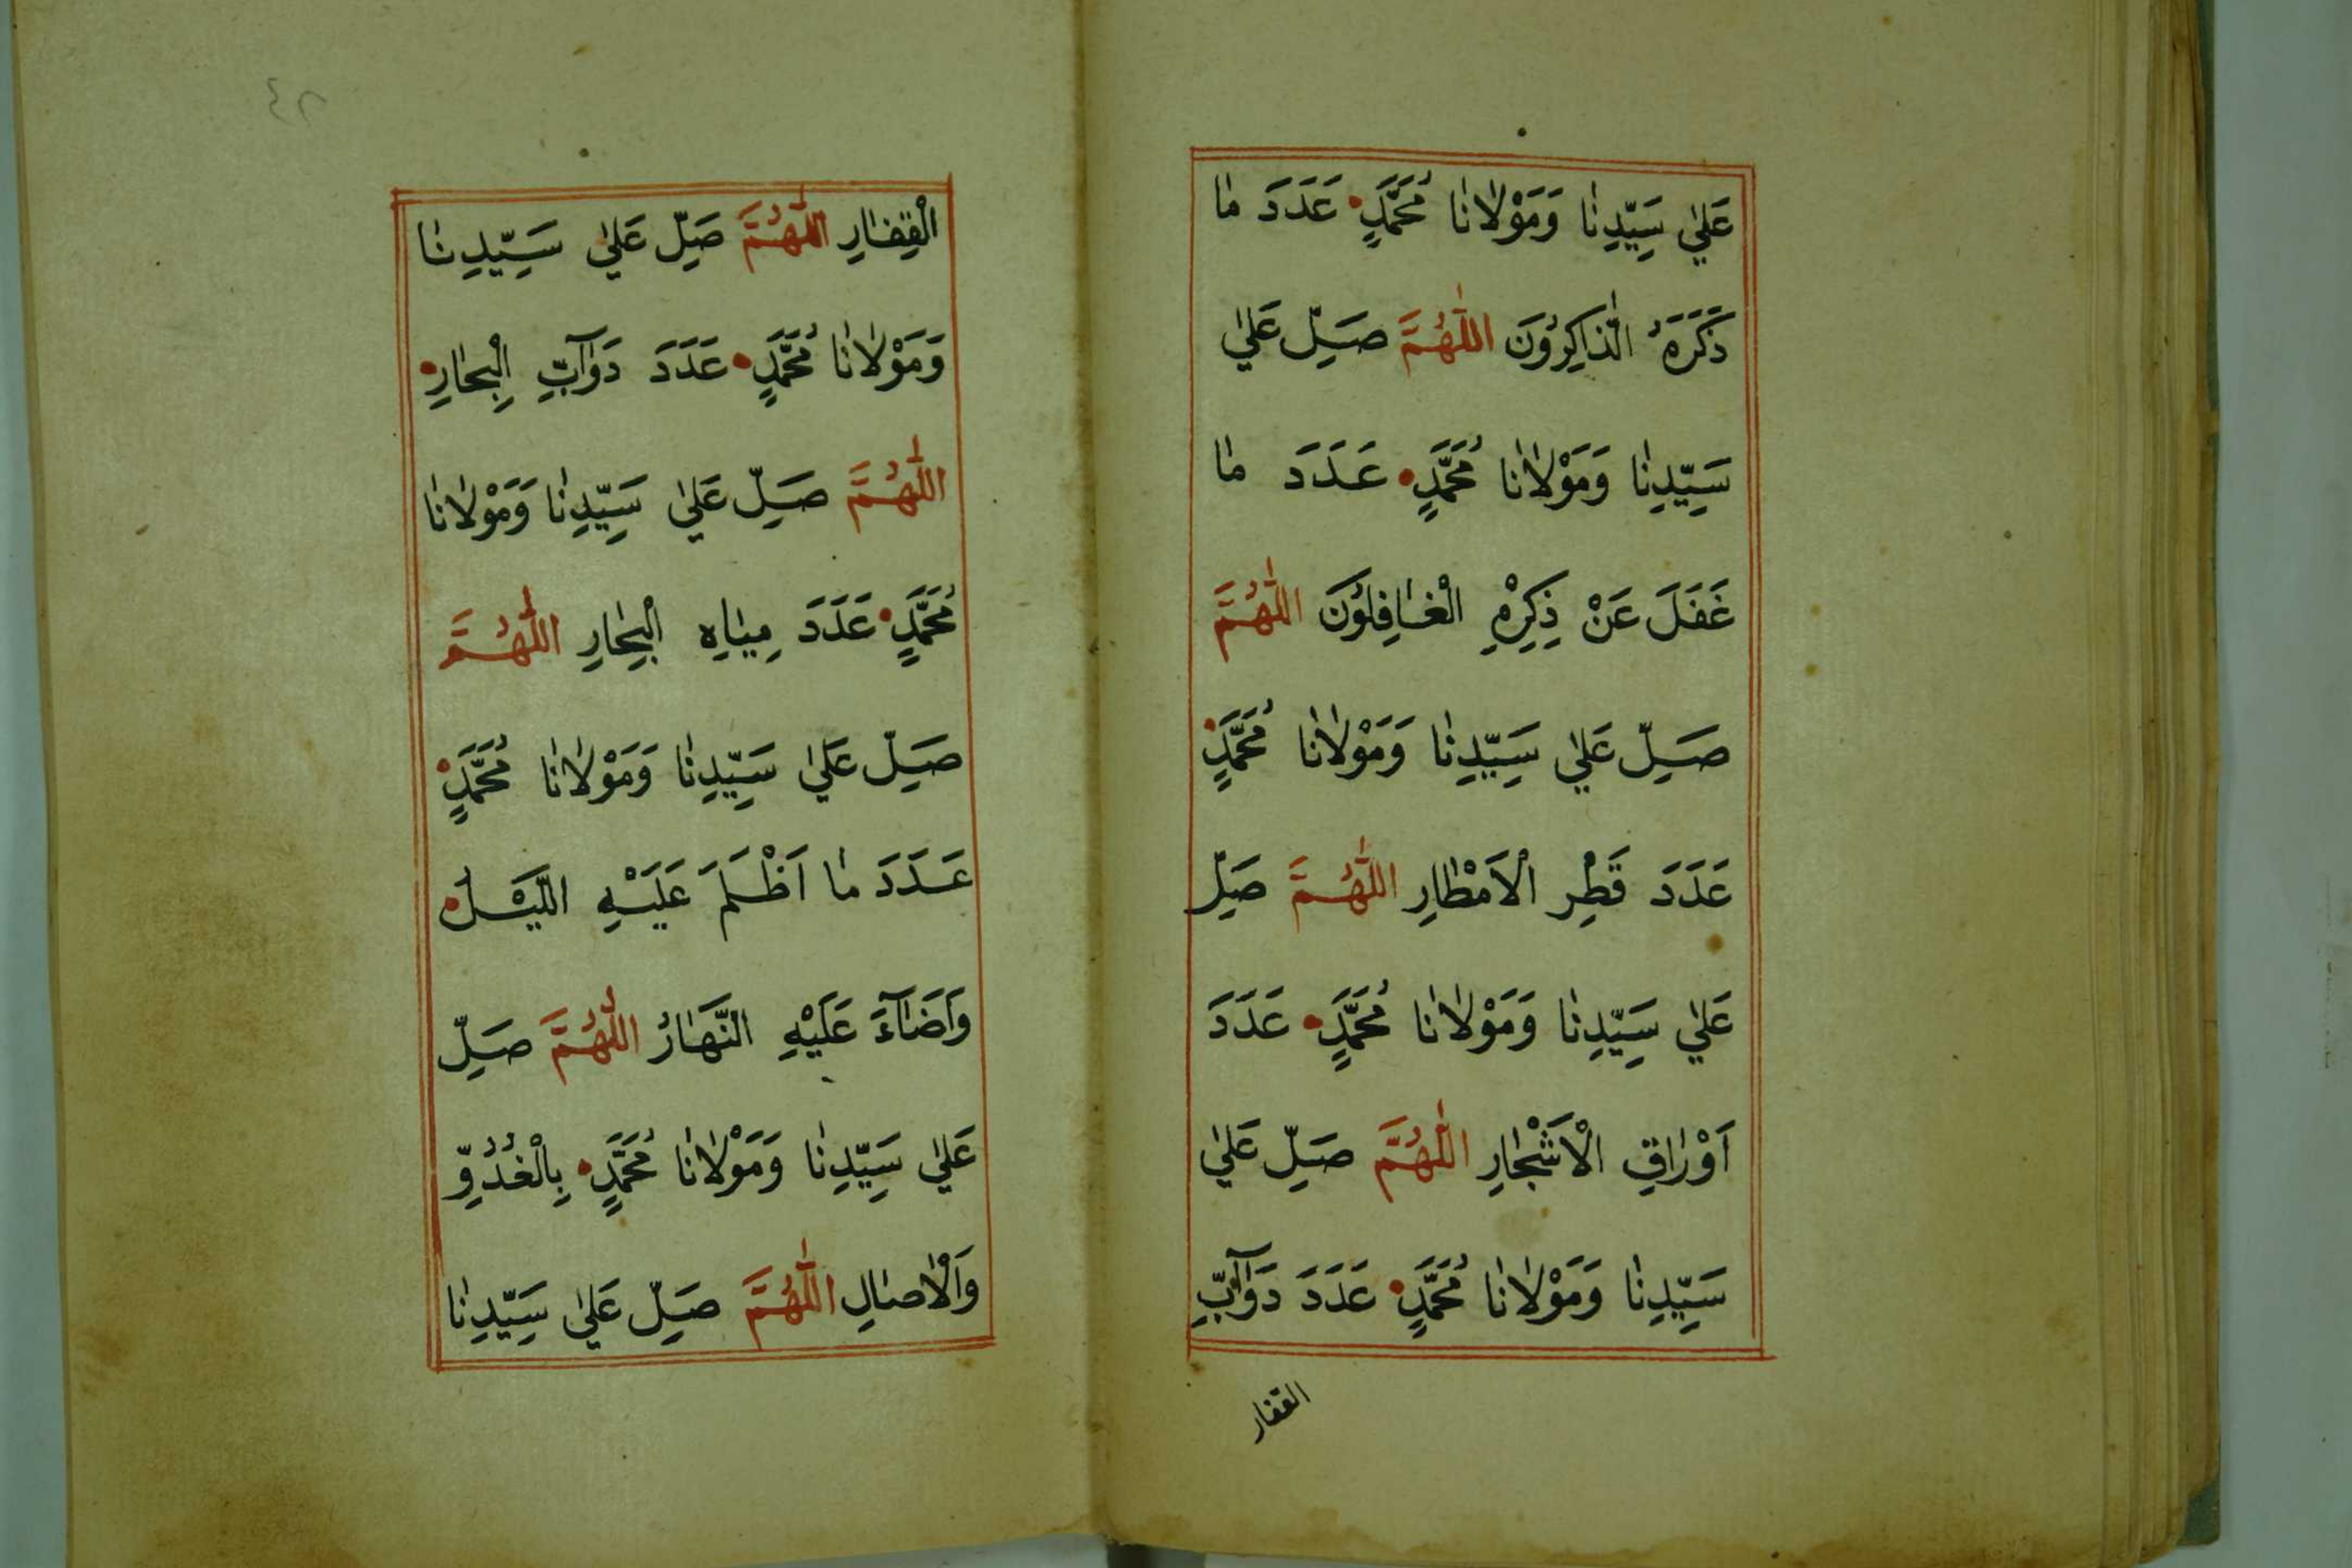 عَلٰي سَيِّدِنٰا وَمَوْلٰانٰا مُحَمَّدٍ عَدَدَ مٰا
ذَكَرَهُ الذّٰاكِرُونَ اَللّٰهُمَّ صَلِّ عَلٰي
سَيِّدِنٰا وَمَوْلٰانٰا مُحَمَّدٍ عَدَدَ مٰا
غَفَلَ عَنْ ذِكِرْهِ الْغٰافِلُونَ اَللّٰهُمَّ
صَلِّ عَلٰي سَيِّدِنٰا وَمَوْلٰانٰا مُحَمَّدٍ
عَدَدَ قَطْرِ الْاَمْطٰارِ اَللّٰهُمَّ صَلِّ
عَلٰي سَيِّدِنٰا وَمَوْلٰانٰا مُحَمَّدٍ عَدَدَ
اَوْرٰاقِ الْاَشْجٰارِ اَللّٰهُمَّ صَلِّ عَلٰي
سَيِّدِنٰا وَمَوْلٰانٰا مُحَمَّدٍ عَدَدَ دَوٰآبِّ
القفار
الْقِفٰارِ اَللّٰهُمَّ صَلِّ عَلٰي سَيِّدِنٰا
وَمَوْلٰانٰا مُحَمَّدٍ عَدَدَ دَوٰآبِّ الْبِحٰارِ
اَللّٰهُمَّ صَلِّ عَلٰي سَيِّدِنٰا وَمَوْلٰانٰا
مُحَمَّدٍ عَدَدَ مِيٰاهِ الْبِحٰارِ اَللّٰهُمَّ
صَلِّ عَلٰي سَيِّدِنٰا وَمَوْلٰانٰا مُحَمَّدٍ
عَدَدَ مٰا اَظْلَمَ عَلَيْهِ اللَّيْلُ
وَاَضٰآءَ عَلَيْهِ النَّهٰارُ اَللّٰهُمَّ صَلِّ
عَلٰي سَيِّدِنٰا وَمَوْلٰانٰا مُحَمَّدٍ بِالْغُدُوِّ
وَالْاٰصٰالِ اَللّٰهُمَّ صَلِّ عَلٰي سَيِّدِنٰا